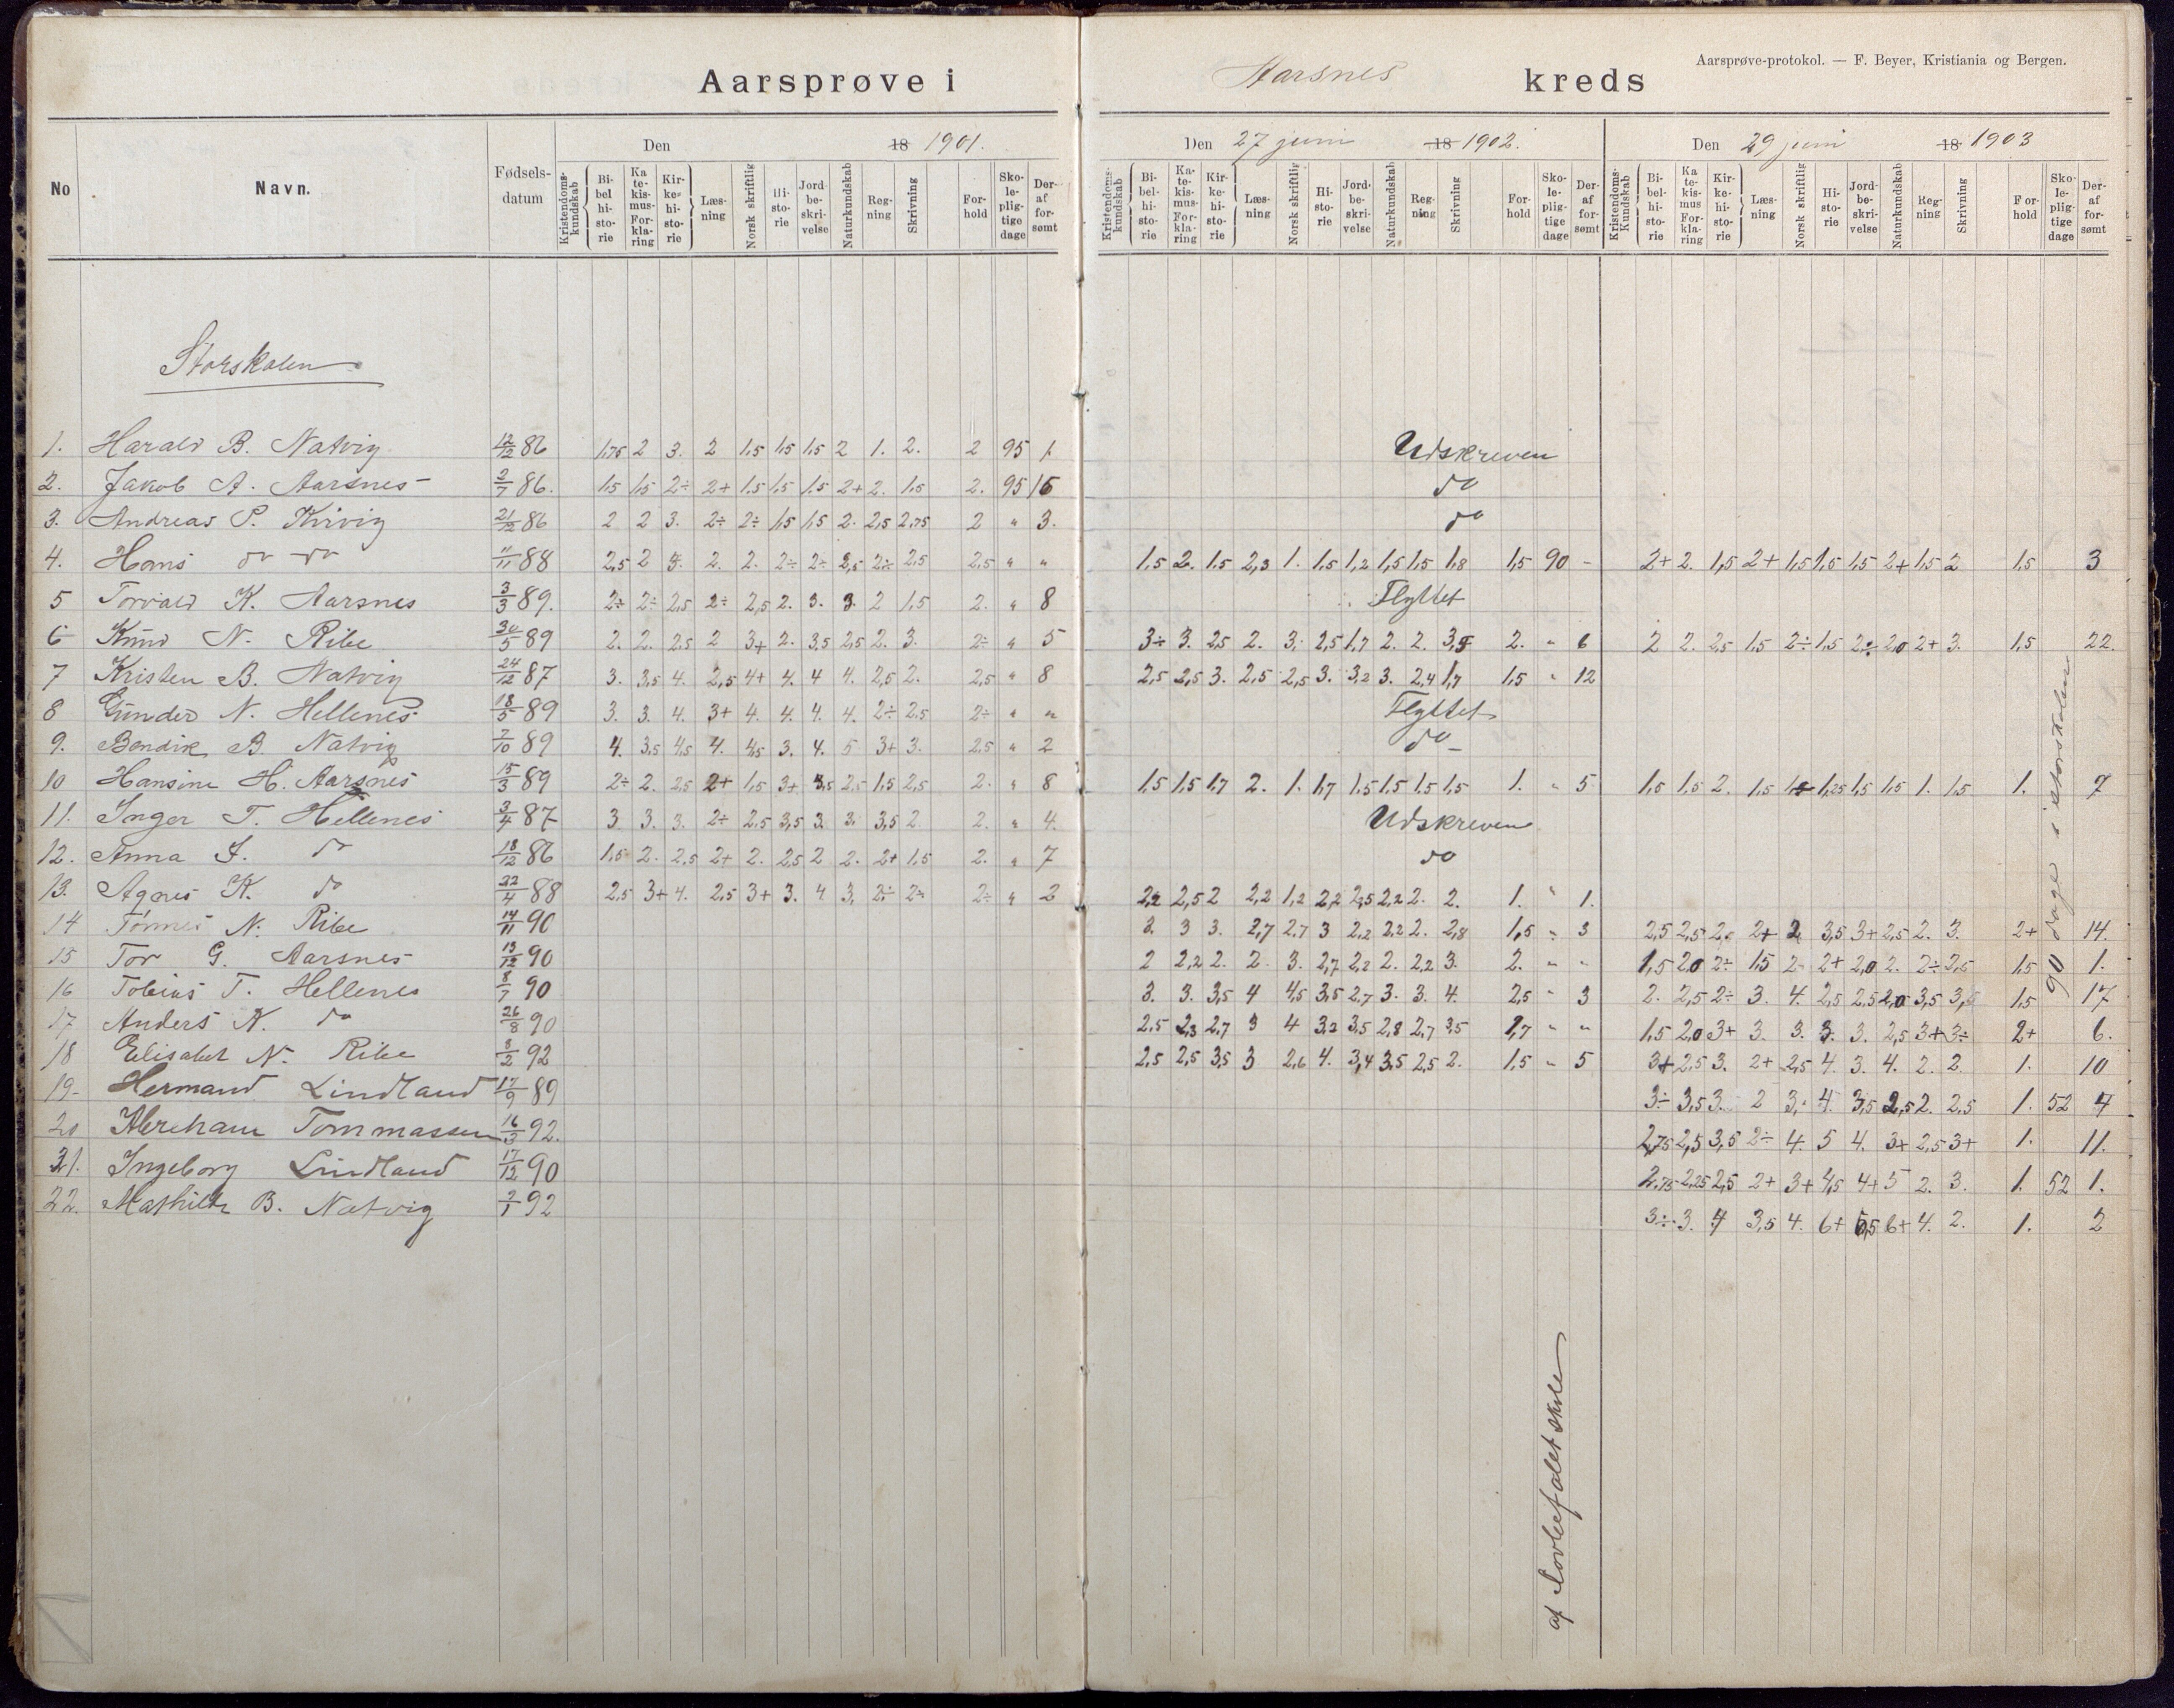 Aarsprøve i Aarsnes kreds
Aarsprøve-protokol. — F. Beyer, Kristiania og Bergen.
No
Navn.
Fødselsdatum
Den 18 1901.
Kristendomskundskab Bibelhistorie Katekismus-Forklaring Kirkehistorie Læsning Norsk skriftlig Historie Jordbeskrivelse Naturkundskab Regning Skrivning Forhold Skolepligtige dage Deraf forsømt
Den 27 juni 18 1902.
Kristendomskundskab Bibelhistorie Katekismus-Forklaring Kirkehistorie Læsning Norsk skriftlig Historie Jordbeskrivelse Naturkundskab Regning Skrivning Forhold Skolepligtige dage Deraf forsømt
Den 29 juni 18 1903
Kristendoms-Kundskab Bibelhistorie Katekismus Forklaring Kirkehistorie Læsning Norsk skriftlig Historie Jordbeskrivelse Naturkundskab Regning Skrivning Forhold Skolepligtige dage Deraf forsømt
Storskolen
1. Harald B. Natvig 12/12 86 1,75 2 3. 2 1,5 1,5 1,5 2 1. 2. 2 95 1 Udskreven
2. Jakob A. Aarsnes 2/7 86. 1,5 1,5 2÷ 2+ 1,5 1,5 1,5 2+ 2. 1,5 2. 95 15 do
3. Andreas P. Kirvig 21/12 86 2 2 3. 2÷ 2÷ 1,5 1,5 2. 2,5 2,75 2 " 3. do
4. Hans do do 11/11 88 2,5 2 3. 2. 2. 2÷ 2÷ 2,5 2÷ 2,5 2,5 " " 1,5 2. 1,5 2,3 1. 1,5 1,2 1,5 1,5 1,8 1,5 90 - 2+ 2. 1,5 2+ 1,5 1,5 1,5 2+ 1,5 2 1,5 3
5 Torvald K. Aarsnes 3/3 89. 2÷ 2÷ 2,5 2÷ 2,5 2. 3. 3. 2 1,5 2. " 8 Flyttet
6 Knud N. Ribe 30/5 89 2. 2. 2,5 2 3+ 2. 3,5 2,5 2. 3. 2÷ " 5 3÷ 3. 2,5 2. 3. 2,5 1,7 2. 2. 3,5 2. " 6 2 2. 2,5 1,5 2÷ 1,5 2÷ 2,0 2+ 3. 1,5 22.
7 Kristen B. Natvig 24/12 87 3. 3,5 4. 2,5 4+ 4. 4 4. 2,5 2. 2,5 " 8 2,5 2,5 3. 2,5 2,5 3. 3,2 3. 2,4 1,7 1,5 " 12
8 Gunder N. Hellenes 18/5 89 3. 3. 4. 3+ 4. 4. 4. 4. 2÷ 2,5 2÷ " " Flyttet
9. Bendik B. Natvig 7/10 89 4. 3,5 4,5 4. 4,5 3. 4. 5 3+ 3. 2,5 " 2 do -
10 Hansine H. Aarsnes 15/3 89 2÷ 2. 2,5 2+ 1,5 3+ 3,5 2,5 1,5 2,5 2. " 8 1,5 1,5 1,7 2. 1. 1,7 1,5 1,5 1,5 1,5 1. " 5 1,5 1,5 2. 1,5 1,5 1,25 1,5 1,5 1. 1,5 1. 7
11. Inger T. Hellenes 3/4 87 3 3. 3. 2÷ 2,5 3,5 3 3. 3,5 2 2. " 4. Udskreven
12. Anna J. do 18/12 86 1,5 2. 2,5 2+ 2. 2,5 2 2. 2+ 1,5 2. " 7 do
13. Agnes K. do 22/4 88 2,5 3+ 4. 2,5 3+ 3. 4 3, 2÷ 2÷ 2÷ " 2 2,2 2,5 2 2,2 1,2 2,2 2,5 2,2 2. 2. 1. " 1.
14 Tønnes N. Ribe 14/11 90 3. 3 3. 2,7 2,7 3 2,2 2,2 2. 2,8 1,5 " 3 2,5 2,5 2, 2+ 2 3,5 3+ 2,5 2. 3. 2+ 14.
15 Tor G. Aarsnes 13/12 90 2 2,2 2. 2. 3. 2,7 2,2 2. 2,2 3. 2. " " 1,5 2,0 2÷ 1,5 2÷ 2+ 2,0 2. 2÷ 2,5 1,5 1.
16 Tobias T. Hellenes 8/7 90 3. 3. 3,5 4 4,5 3,5 2,7 3. 3. 4. 2,5 " 3 2. 2,5 2÷ 3. 4. 2,5 2,5 2,0 3,5 3,5 1,5 17
17 Anders K. do 26/8 90 2,5 2,3 2,7 3 4 3,2 3,5 2,8 2,7 3,5 1,7 " " 1,5 2,0 3+ 3. 3. 3. 3. 2,5 3+ 3÷ 2+ 6.
18 Elisabet N. Ribe 8/2 92 2,5 2,5 3,5 3 2,6 4. 3,4 3,5 2,5 2. 1,5 " 5 3+ 2,5 3. 2+ 2,5 4. 3. 4. 2. 2. 1. 10
19- Hermand Lindland 17/9 89 3÷ 3,5 3. 2 3,- 4. 3,5 2,5 2. 2,5 1. 52 4
20 Abreham Tommassen 16/3 92. 2,75 2,5 3,5 2÷ 4. 5 4. 3+ 2,5 3+ 1. 11.
21. Ingeborg Lindland 17/12 90 2,75 2,25 2,5 2+ 3+ 4,5 4+ 5 2. 3. 1. 52 1.
22. Mathilde B. Natvig 2/1 92 3÷ 3. 4 3,5 4. 6+ 6,5 6+ 4. 2. 1. 2
90 dage i storskolen
af lovbefalet skole